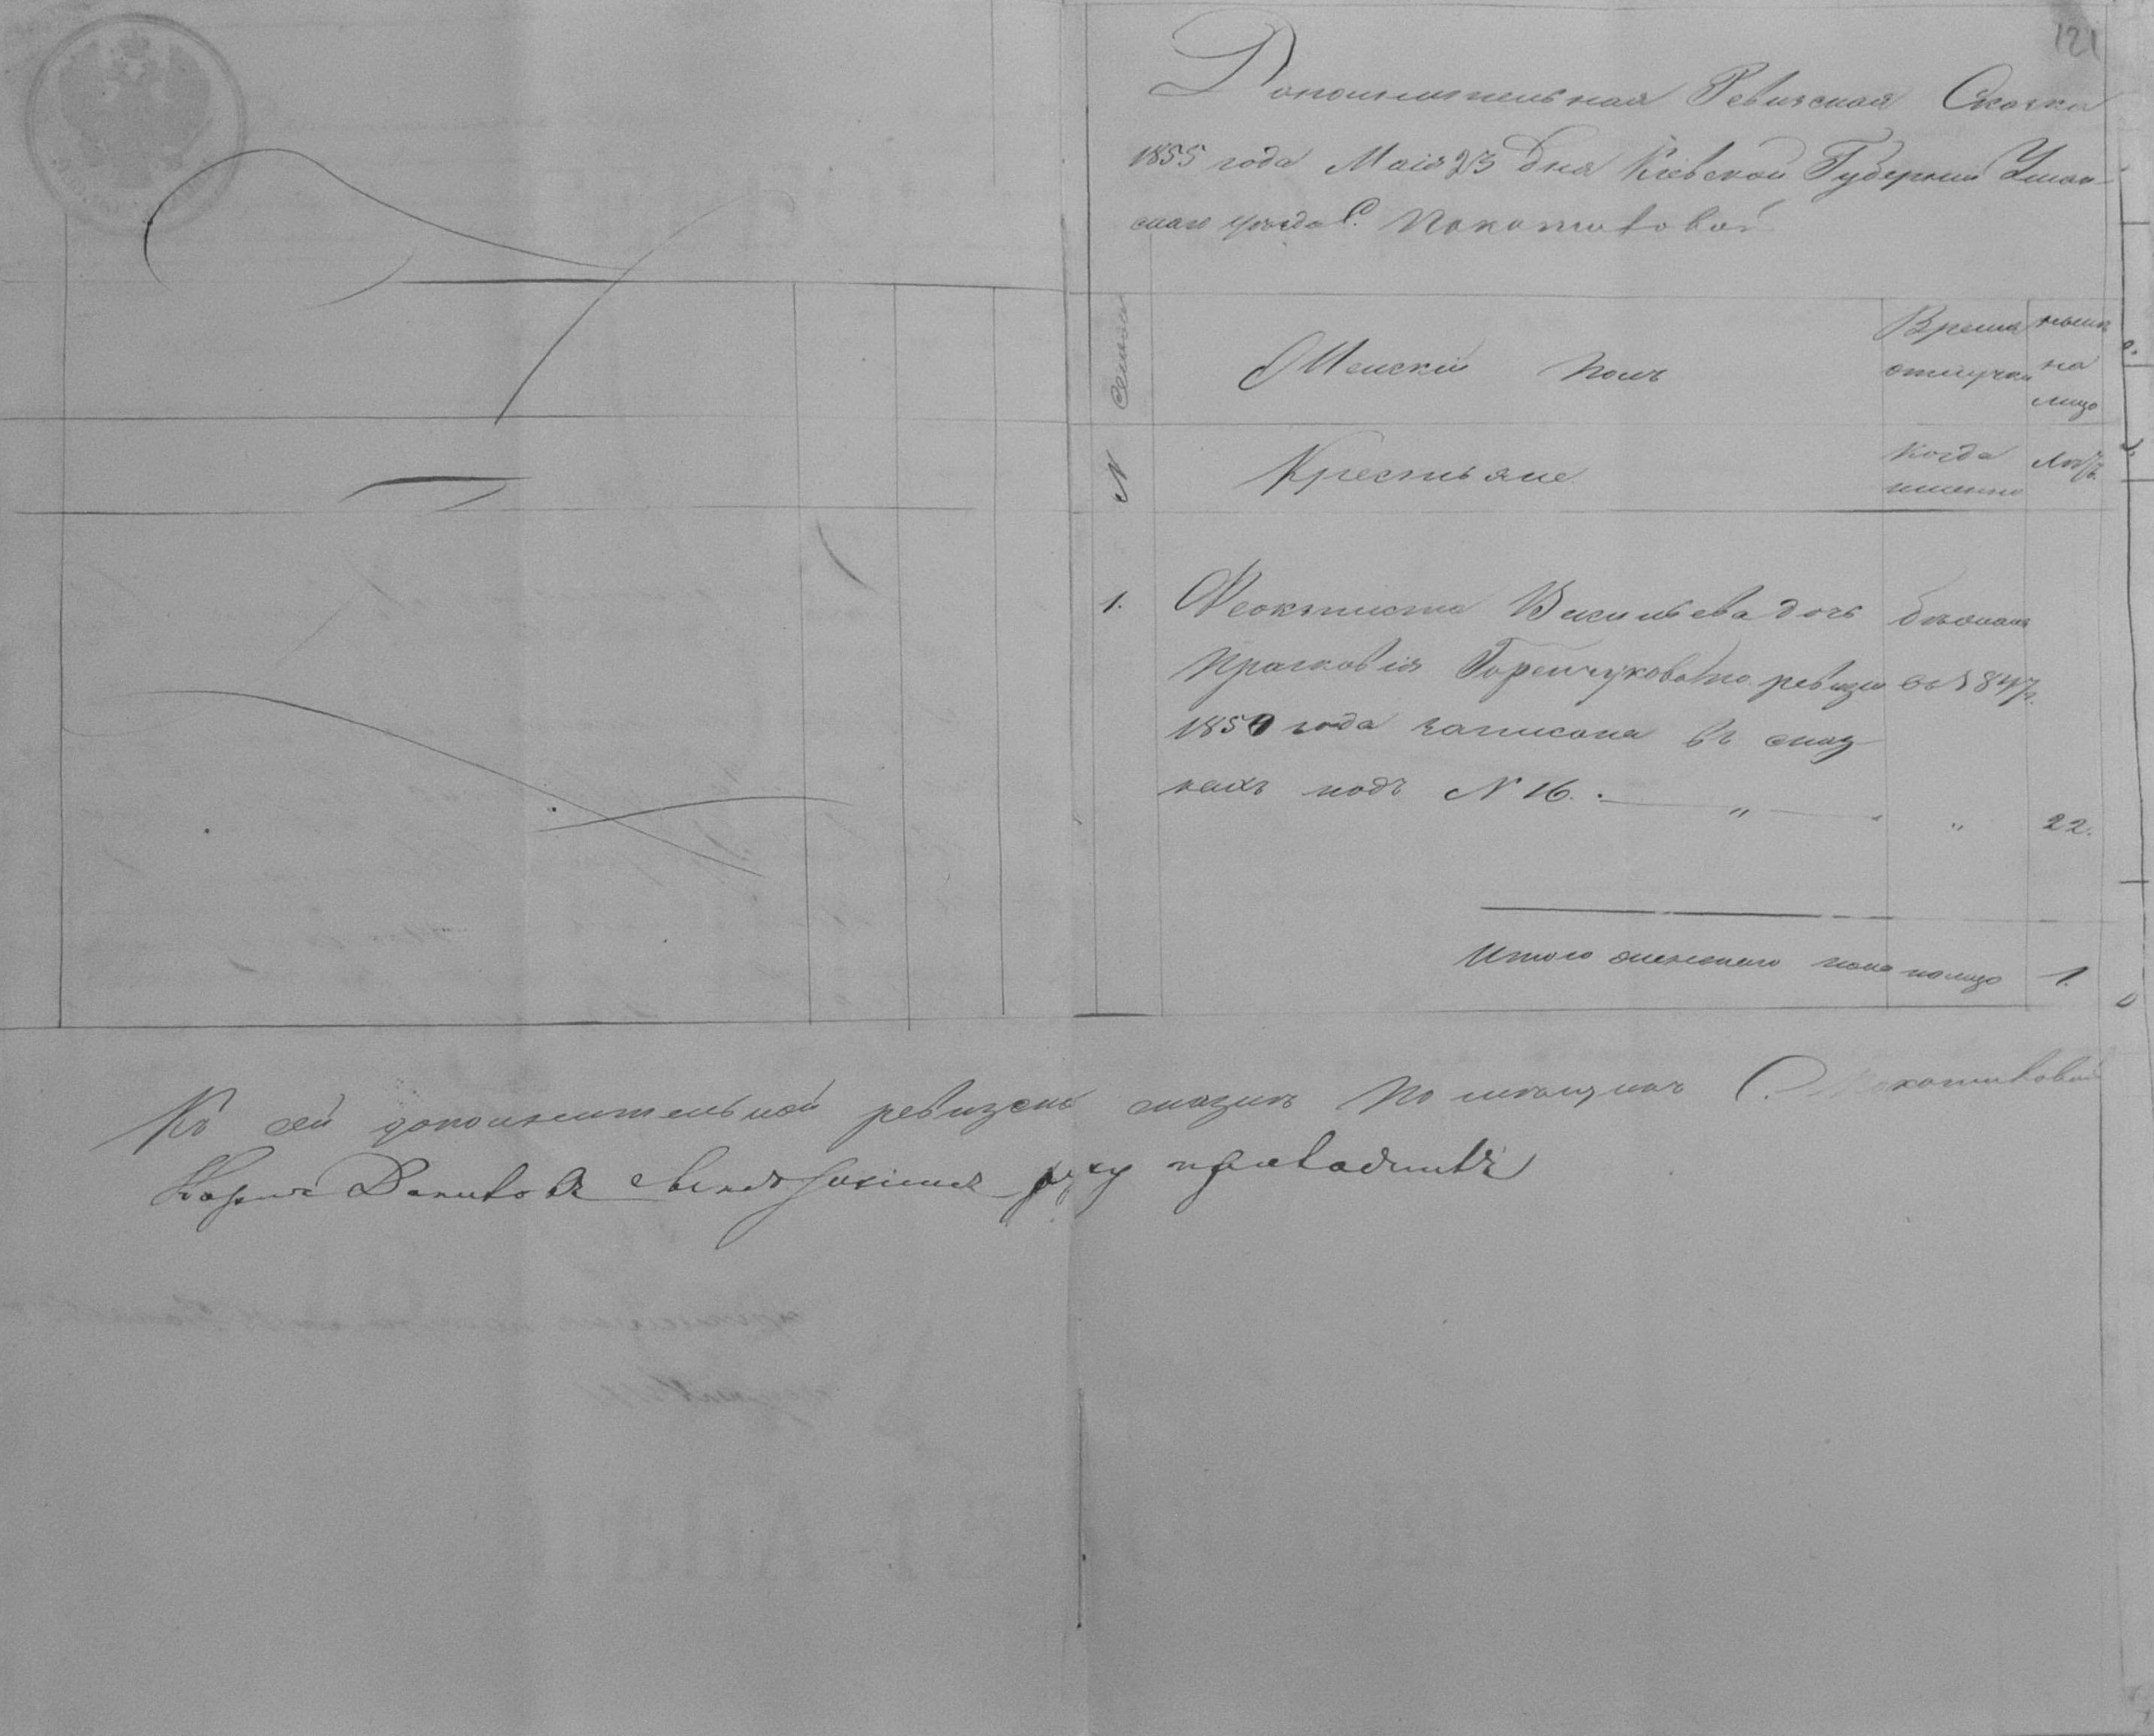 121
Дополнительная Ревизская Сказка
1855 года Маія 23 дня Кіевской Губерніи Уман-
скаго уѣзда С. Покотиловой
N Семьи
Женскій Полъ
Время отлучки
нынѣ на лицо
Крестьяне
Когда именно
Лѣтъ
1. Феоктиста Васильева дочь бѣжала
Прасковія по ревизіи въ 1847г.
1850 года записана въ сказ
кахъ подъ N 16. 22.
Итого женскаго пола налицо 1.
Къ сей дополнительной ревизско сказкѣ Помѣщикъ С. Покотиловой
Даниловъ руку приложилъ